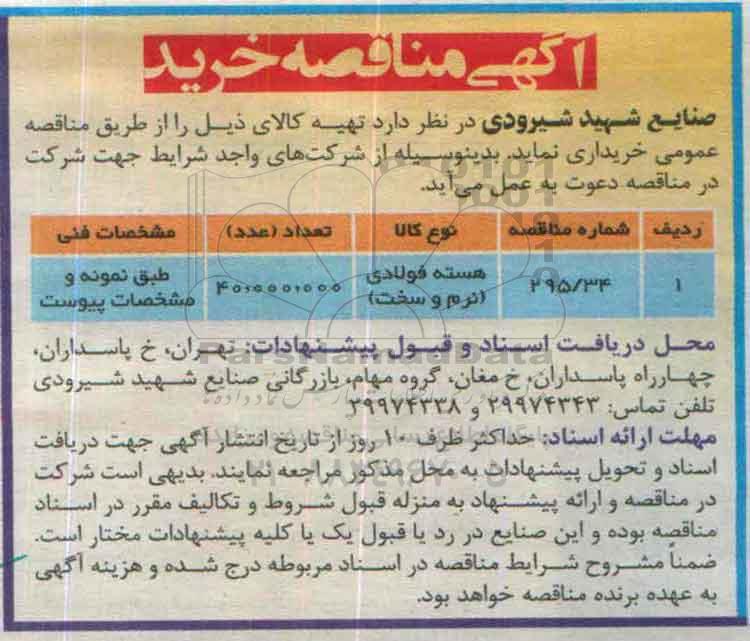 آگهی مناقصه خرید
صنایع شهید شیرودی در نظر دارد تهیه کالای ذیل را از طریق مناقصه
عمومی خریداری نماید. بدینوسیله از شرکت‌های واجد شرایط جهت شرکت
در مناقصه دعوت به عمل می‌آید.
ردیف شماره مناقصه نوع کالا تعداد (عدد) مشخصات فنی
۱ ۲۹۵/۳۴ هسته فولادی (نرم و سخت) ۴۰,۰۰۰,۰۰۰ طبق نمونه و مشخصات پیوست
محل دریافت اسناد و قبول پیشنهادات: تهران، خ پاسداران،
چهارراه پاسداران، خ مغان، گروه مهام، بازرگانی صنایع شهید شیرودی
تلفن تماس: ۲۹۹۷۴۳۴۳ و ۲۹۹۷۴۳۳۸
مهلت ارائه اسناد: حداکثر ظرف ۱۰ روز از تاریخ انتشار آگهی جهت دریافت
اسناد و تحویل پیشنهادات به محل مذکور مراجعه نمایند. بدیهی است شرکت
در مناقصه و ارائه پیشنهاد به منزله قبول شروط و تکالیف مقرر در اسناد
مناقصه بوده و این صنایع در رد یا قبول یک یا کلیه پیشنهادات مختار است.
ضمناً مشروح شرایط مناقصه در اسناد مربوطه درج شده و هزینه آگهی
به عهده برنده مناقصه خواهد بود.
ParsNamadData